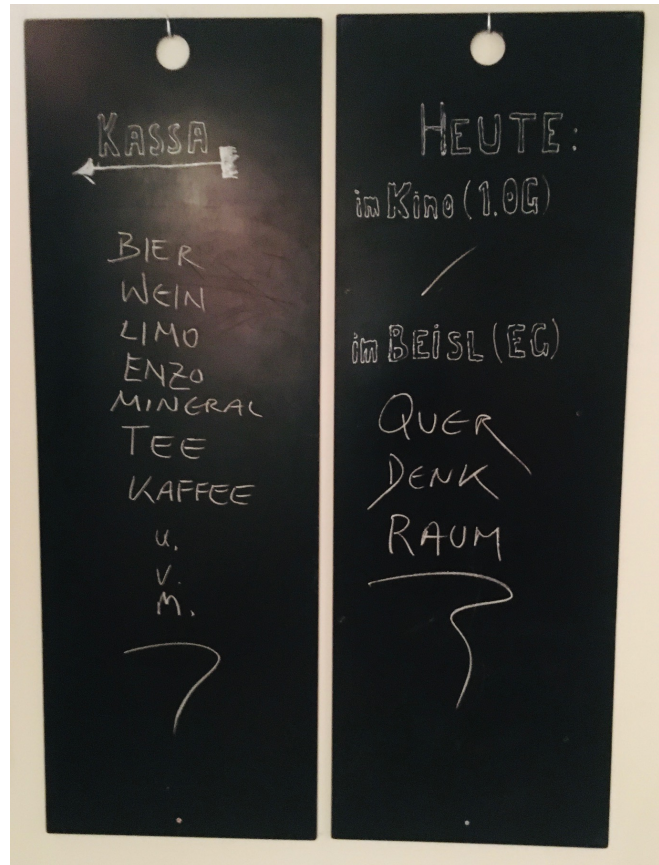 KASSA
BIER
WEIN
LIMO
ENZO
MINERAL
TEE
KAFFEE
u.
v.
m.
HEUTE:
im Kino (1.OG)
im BEiSL (EG)
QUER
DENK
RAUM